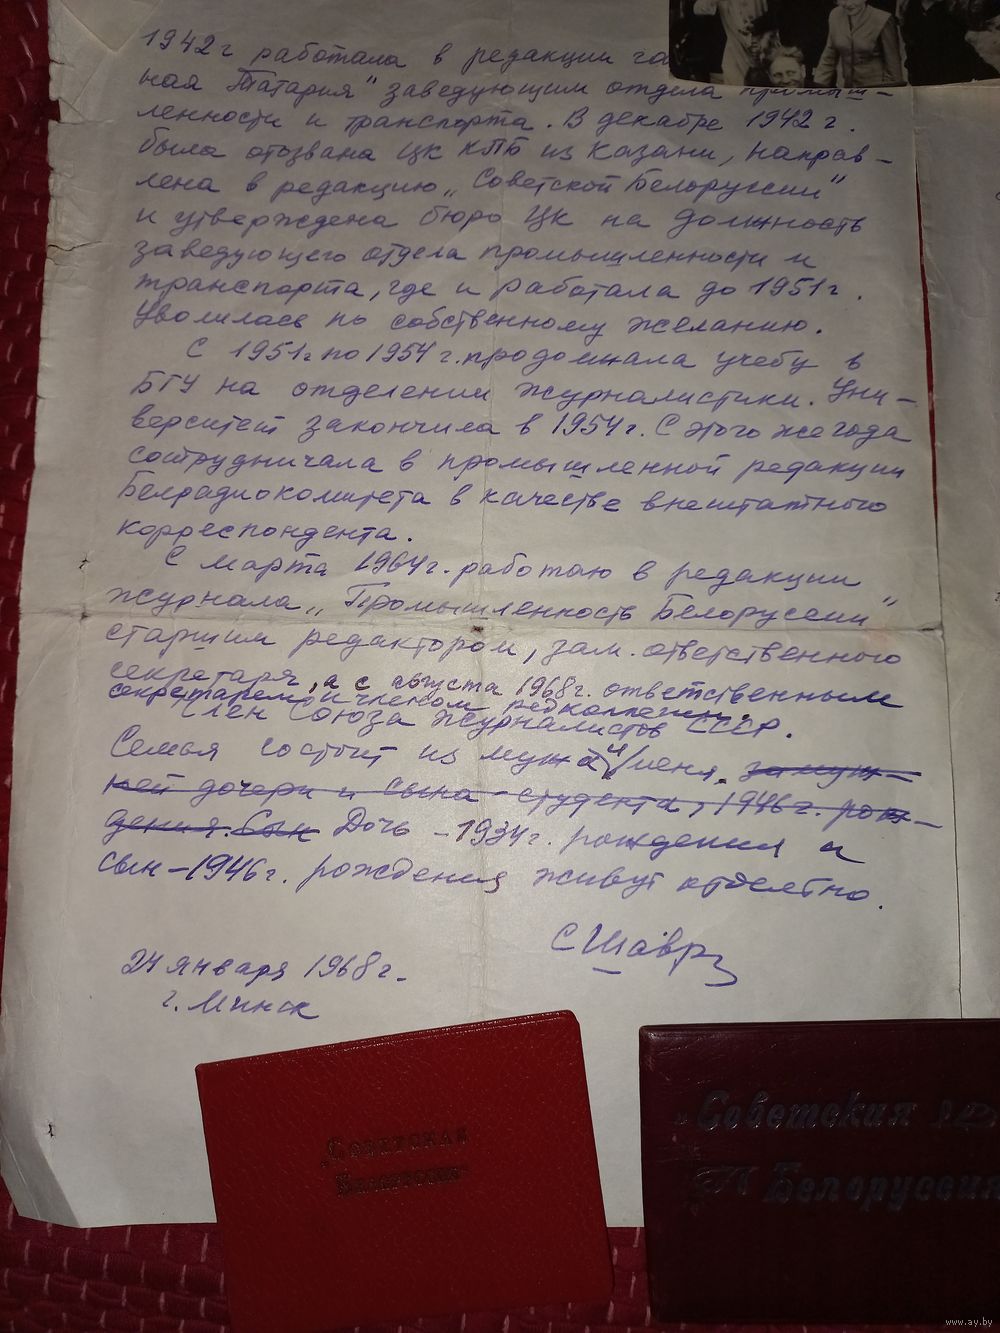 1942 г работала в редакции га
ная Татария" заведующим отдела промыш-
ленности и транспорта. В декабре 1942 г.
была отозвана ЦК КПБ из Казани, направ-
лена в редакцию „Советской Белоруссии"
и утверждена бюро ЦК на должность
заведующего отдела промышленности и
транспорта, где и работала до 1951 г.
Уволилась по собственному желанию.
С 1951 г. по 1954 г. продолжала учебу в
БГУ на отделении журналистики. Уни-
верситет закончила в 1954 г. С этого же года
сотрудничала в промышленной редакции
Белрадиокомитета в качестве внештатного
корреспондента.
С марта 1964 г. работаю в редакции
журнала „Промышленность Белоруссии"
старшим редактором, зам. ответственного
секретаря, а с августа 1968 г. ответственным
секретарем и членом редколлегии.
Член Союза журналистов СССР.
Семья состоит из мужа и меня. замуж-
ней дочери и сына - студента, 1946 г. рож-
дения. Сын Дочь - 1934 г. рождения и
сын - 1946 г. рождения живут отдельно.
С Шавр
24 января 1968 г.
г. Минск
„Советская
Белоруссия"
„Советская
Белоруссия
www.ay.by